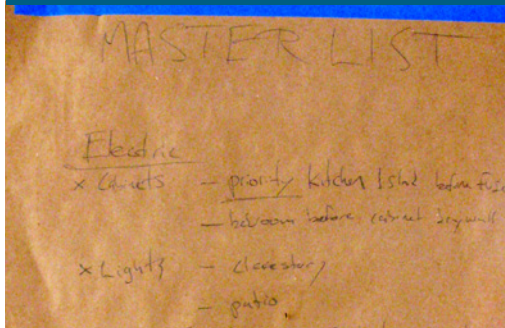 MASTER LIST
Electric
x Cabinets — priority Kitchen Island before
— bedroom before cabinet drywall
x Lights — clerestory
— patio